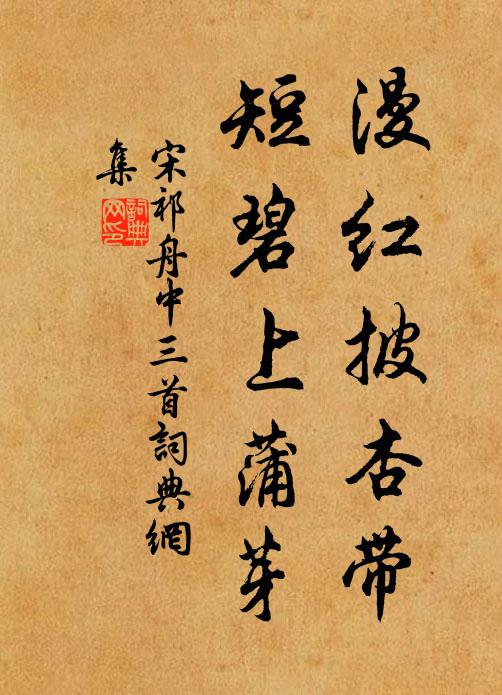 漫红披杏带
短碧上蒲芽
宋祁舟中三首詞典網
集
詞典网印